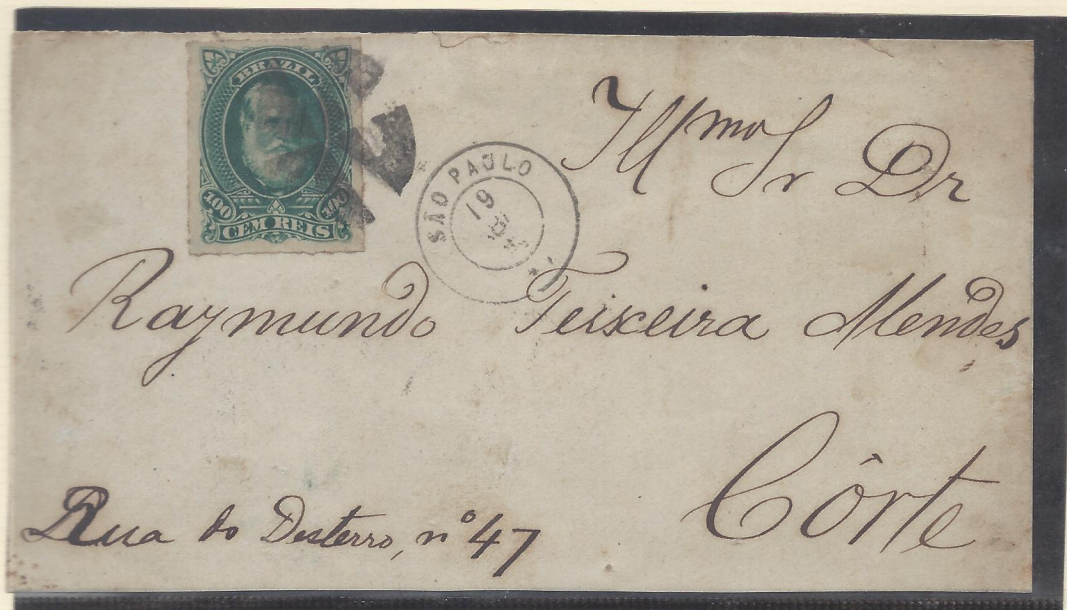 BRAZIL
100 100
CEM REIS
SÃO PAULO
19
Illmo Sr Dr
Raymundo Teixeira Mendes
Côrte
Rua do Desterro, nº 47